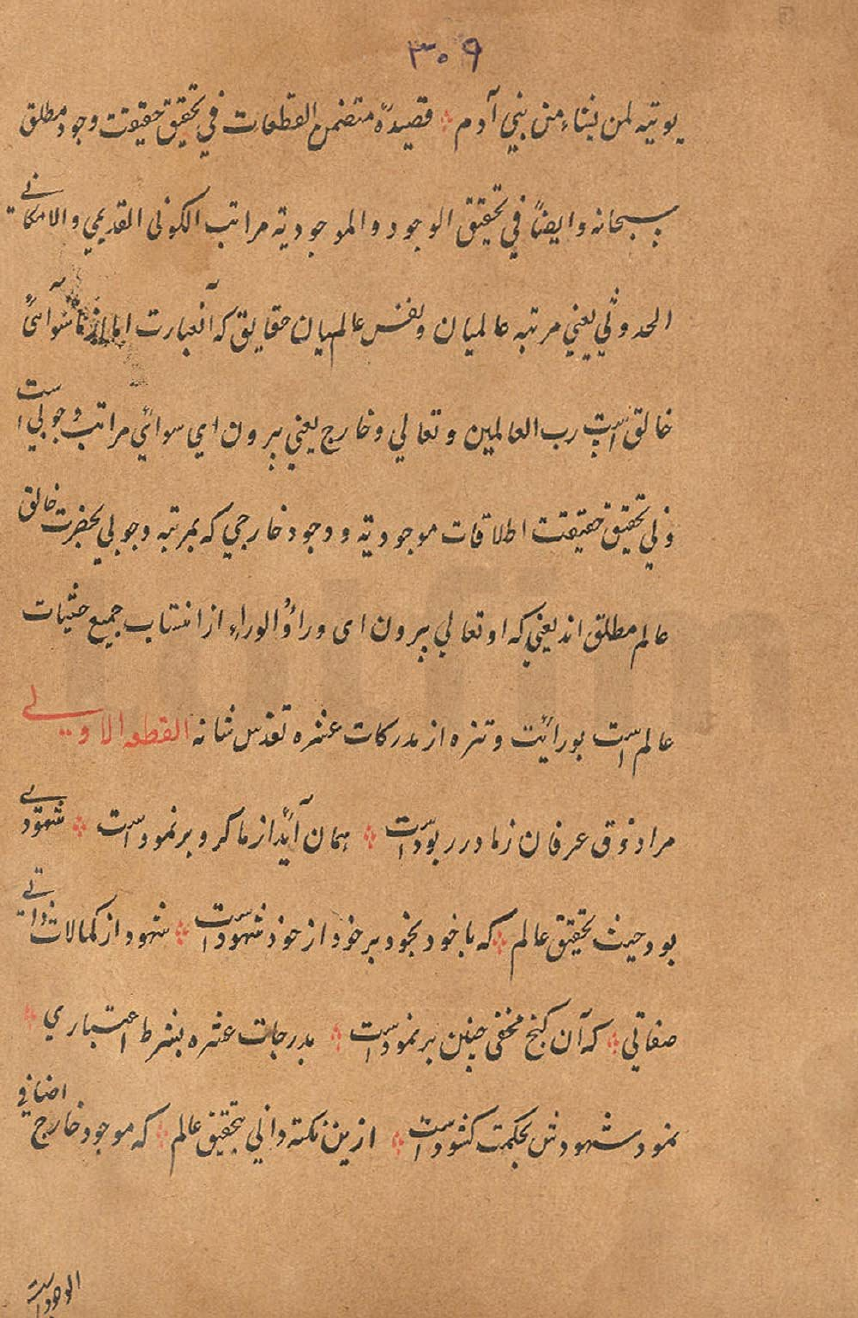 ۳۰۹
یوتیه لمن یشاء من بني آدم ؞ قصیدهٔ متضمن القطعات في تحقیق حقیقت وجود مطلق
سبحانه و ایضاً في تحقیق الوجود والموجودیته مراتب الکونی القدیمي والامکانے
الحدوثي یعني مرتبه عالمیان و نفس عالم بیان حقایق که آنعبارت
خالق است رب العالمین و تعالي و خارج یعني برون اي سوائي مراتب وجوبي است
و في تحقیق حقیقت اطلاقات موجودیته و وجود خارجي که بمرتبه وجوبي بحضرت خالق
عالم مطلق اند یعني که او تعالي برون ای وراؤالوراء از انتساب جمیع حثیات
عالم است بورائیت و تنزه از مدرکات عشره تقدس شانه القطعه الاویلے
مرا ذوق عرفان زما در ربود است ؞ همان آید از ما کرو بر نمود است ؞ شهودے
بود حیث تحقیق عالم ؞ که با خود بخود بر خود از خود شهود است ؞ شهود از کمالات ذاتے
صفاتي ؞ که آن کنج مخفي چنین بر نمود است ؞ مدرجات عشره بشرط اعتباري ؞
نمود شهودش بحکمت کشود است ؞ ازین نکته داني بتحقیق عالم ؞ که موجود خارج اضافي
الوجود است